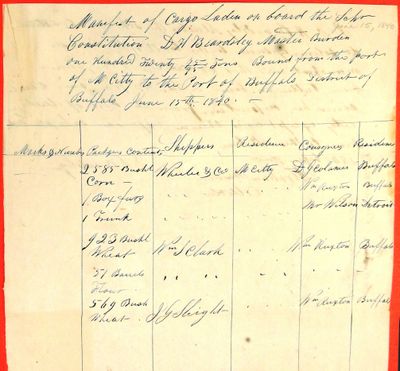 June 15, 1840
Manifest of Cargo Laden on board the Schr
Constitution D. H Beardsley Master Burden
one hundred Twenty 25/95 Tons Bound from the port
of M Citty to the Port of Buffalo District of
Buffalo June 15th 1840. -
Marks & Numbers Packages Contents Shippers Residence Consignees Residence
2585 Bushl Wheeler & Co M Citty Buffalo
Corn
1 Box Wm Ruxton Buffalo
1 Trunk Mr Wilson Detroit
923 Bushl Wm S Clark " " Wm Ruxton Buffalo
Wheat
51 Barrels " " " " " "
Flour
569 Bush J G Sleight " " Wm Ruxton Buffalo
Wheat